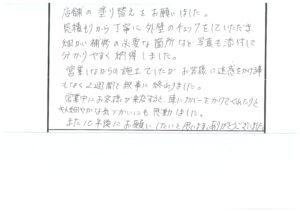 店舗の塗り替えをお願いしました。
見積りから丁寧に外壁のチェックをしていただき
細かい補修の必要な箇所など写真も添付して
分かりやすく納得しました。
営業しながらの施工でしたがお客様に迷惑をかける事
もなく2週間で無事に終わりました。
営業中にお客様が来店すると、車にカバーをかけてくれたりと
細やかな気づかいにも感動しました。
また10年後にお願いしたいと思います。ありがとうございました